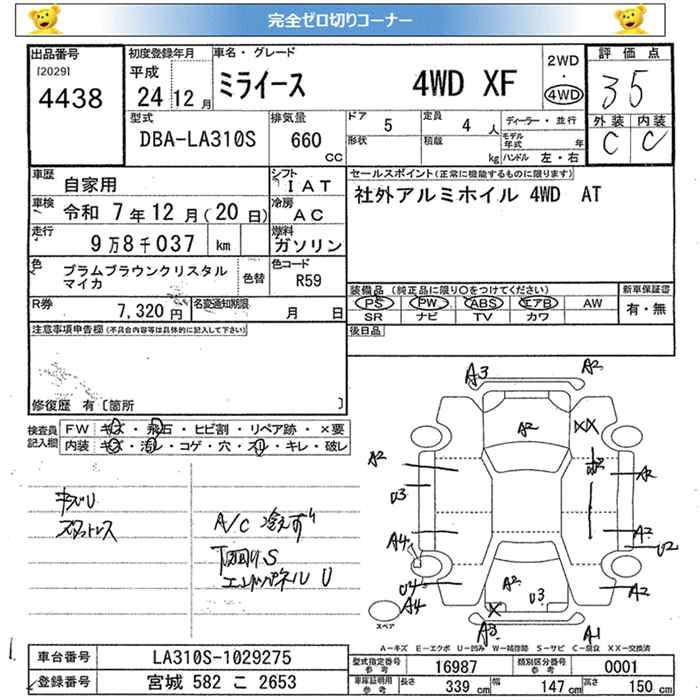 完全ゼロ切りコーナー
出品番号
[2029]
4438
初度登録年月
平成
24 12 月
車名・グレード
ミライース 4WD XF
2WD
・
4WD
評価点
35
外装 内装
C C
型式
DBA-LA310S
排気量
660 CC
ドア 5
形状
定員 4 人
積載 kg
ディーラー・並行
モデル年式 年
ハンドル 左・右
車歴 自家用
シフト IAT
車検 令和 7年 12月(20日)
冷房 AC
走行 9万8千037 km
燃料 ガソリン
色 プラムブラウンクリスタル
マイカ
色替
色コード R59
R券 7,320円
名変通知期限 月 日
セールスポイント(正常に機能するものに限ります)
社外アルミホイル 4WD AT
装備品(純正品に限り〇をつけてください)
PS PW ABS エアB AW
SR ナビ TV カワ
新車保証書
有・無
後日品
注意事項申告欄(不具合内容等は具体的に記入して下さい)
修復歴 有〔箇所 〕
検査員記入欄
FW キズ・飛石・ヒビ割・リペア跡・×要
内装 キズ・汚レ・コゲ・穴・スリ・キレ・破レ
キズU
A/C 冷えず
下回りS
エンドパネル U
A3 A2
A2 XX
A2 U3 A2
A4 A2 U2
U4 A4 A2 U3 A2
X
A3 A1
スペア
A－キズ E－エクボ U－凹み W－補修跡 S－サビ C－腐食 XX－交換済
車台番号 LA310S-1029275
登録番号 宮城 582 こ 2653
型式指定番号 参考 16987
類別区分番号 参考 0001
車庫証明用 参考 長さ 339 cm 幅 147 cm 高さ 150 cm